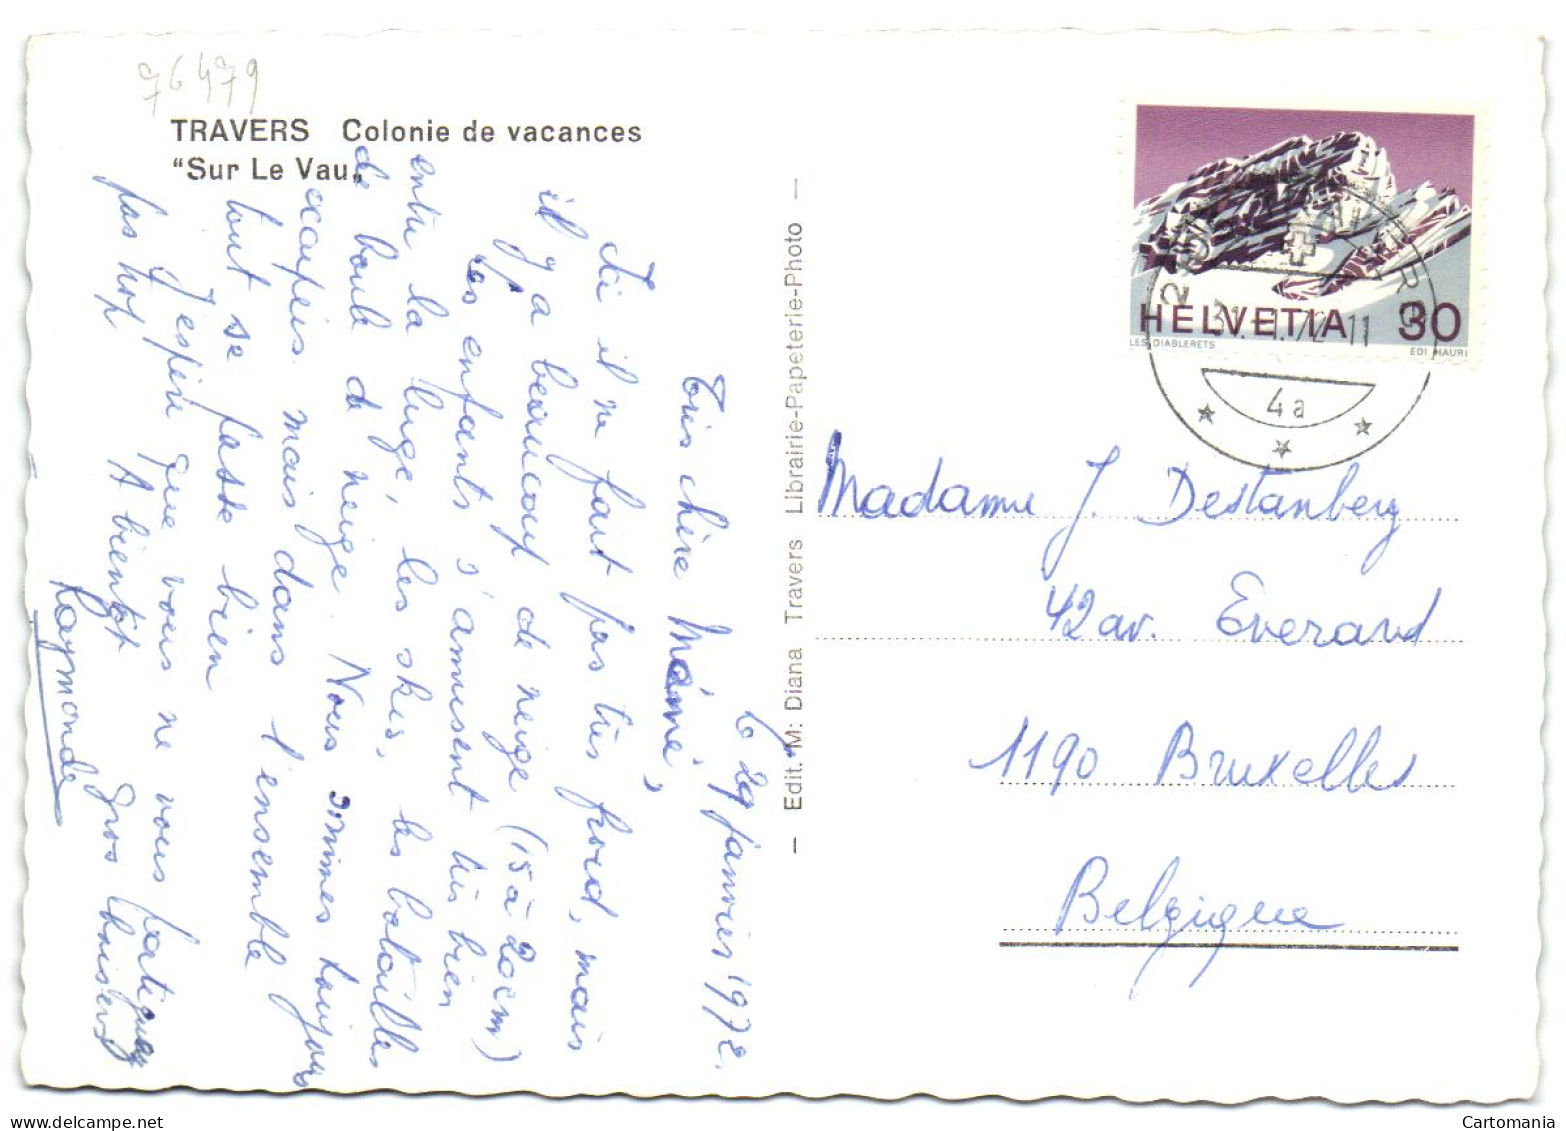 76479
TRAVERS Colonie de vacances
"Sur Le Vau„
le 29 janvier 1972.
Très chère Mémé,
Ici il ne fait pas très froid, mais
il y a beaucoup de neige (15 à 20cm)
Les enfants s'amusent très bien
entre la luge, les skis, les batailles
de boule de neige. Nous sommes toujours
occupées mais dans l'ensemble
tout se passe bien
J'espère que vous ne vous fatiguez
pas trop A bientôt gros baisers
Raymonde
— Edit. M: Diana Travers Librairie-Papeterie-Photo —
HELVETIA 30
LES DIABLERETS
EDI HAURI
31.-1.72-11
4a
Madame J. Destanberg
42 av. Everard
1190 Bruxelles
Belgique
www.delcampe.net
Cartomania